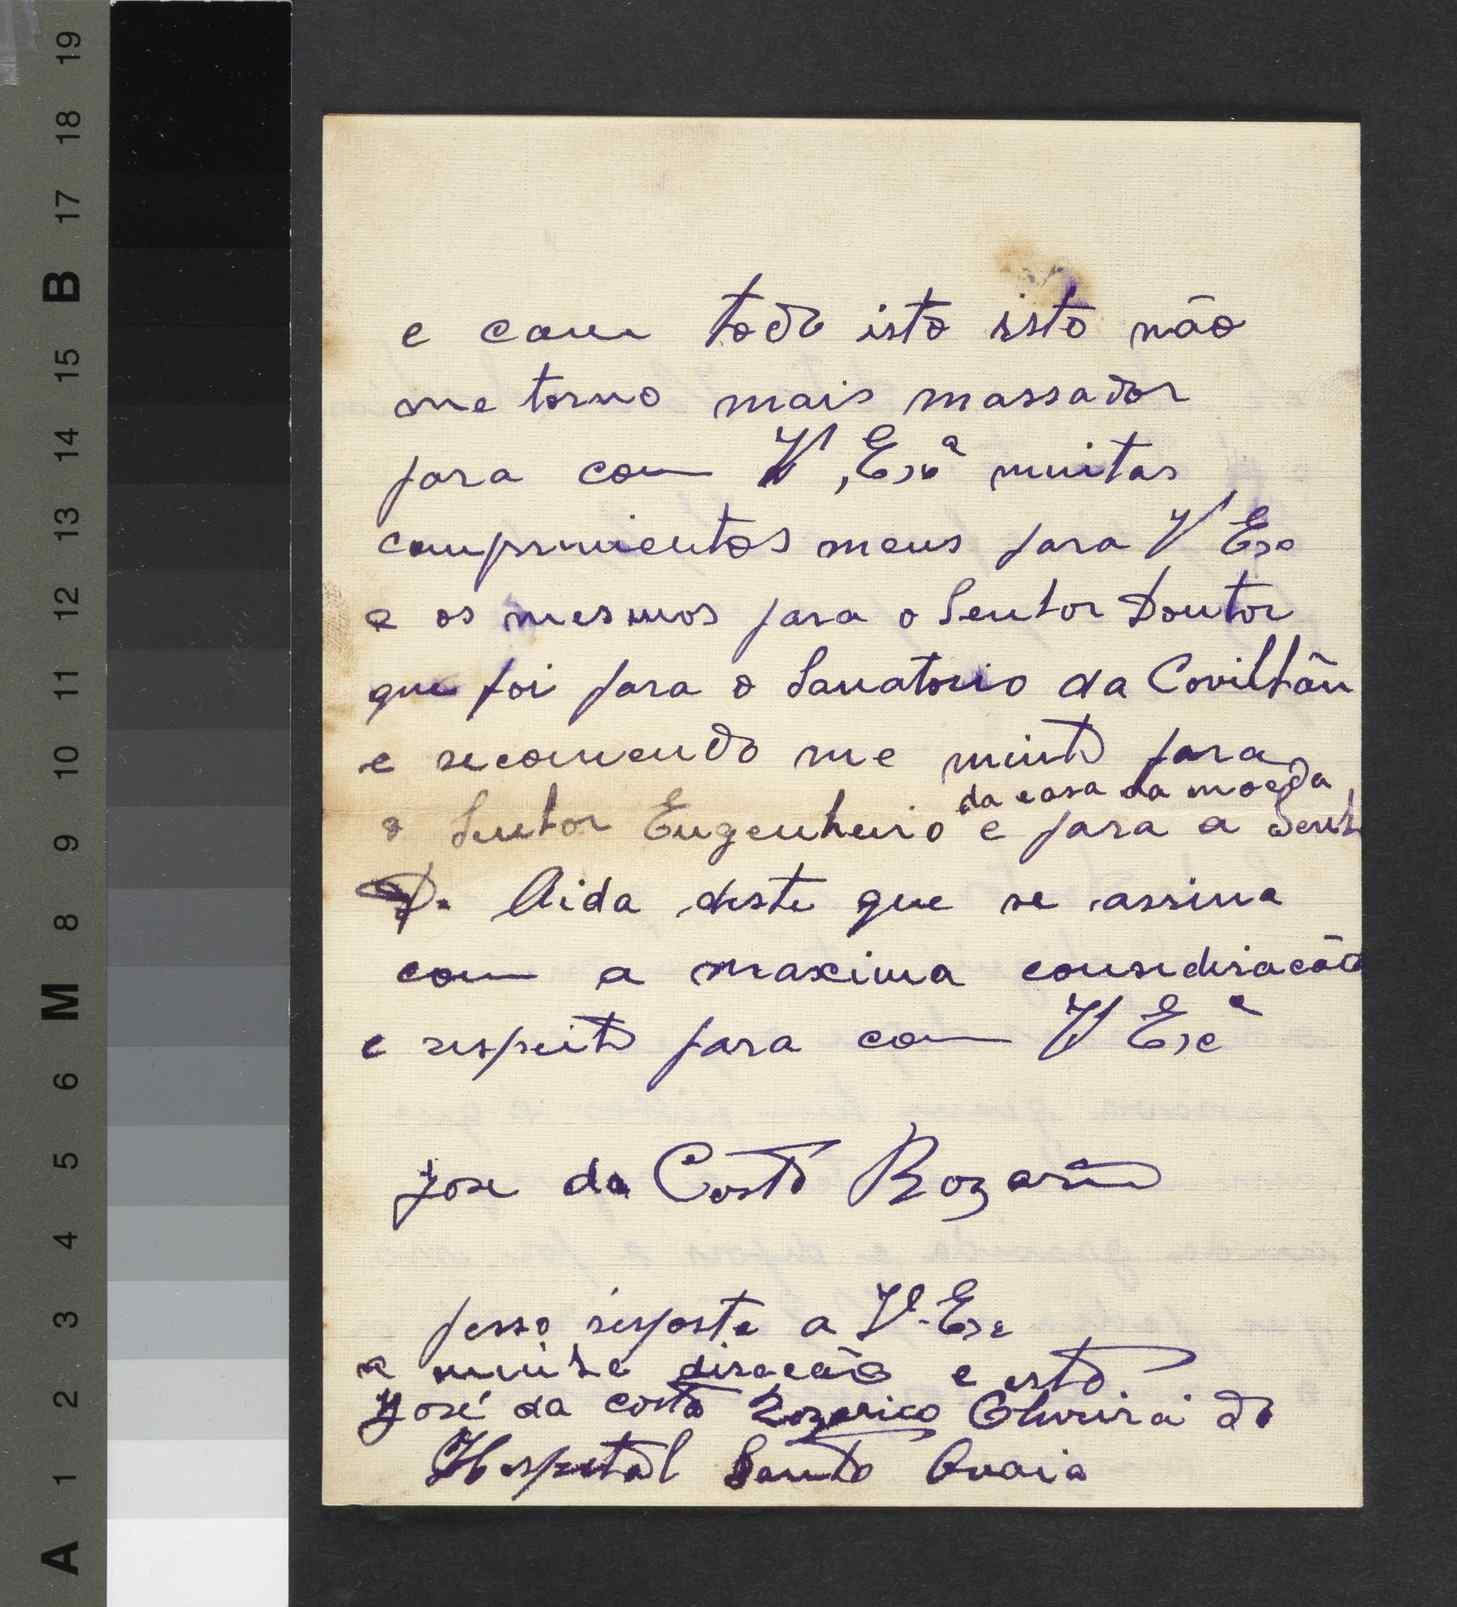 e com todo isto isto não
me torno mais massador
para com V, Exª muitas
comprimentos meus para V Exª
e os mesmos para o Senhor Doutor
que foi para o Sanatorio da Covilhãn
e recomendo me muito para
da casa da moeda
o Senhor Engenheiro e para a Senh
D. Aida deste que se assina
com a maxima consideração
e respeito para com V Exª
Jose da Costa Rozario
pesso resposta a V. Exª
a minha diração e esta
José da costa Rozario Oliveira do
Hospital Santo